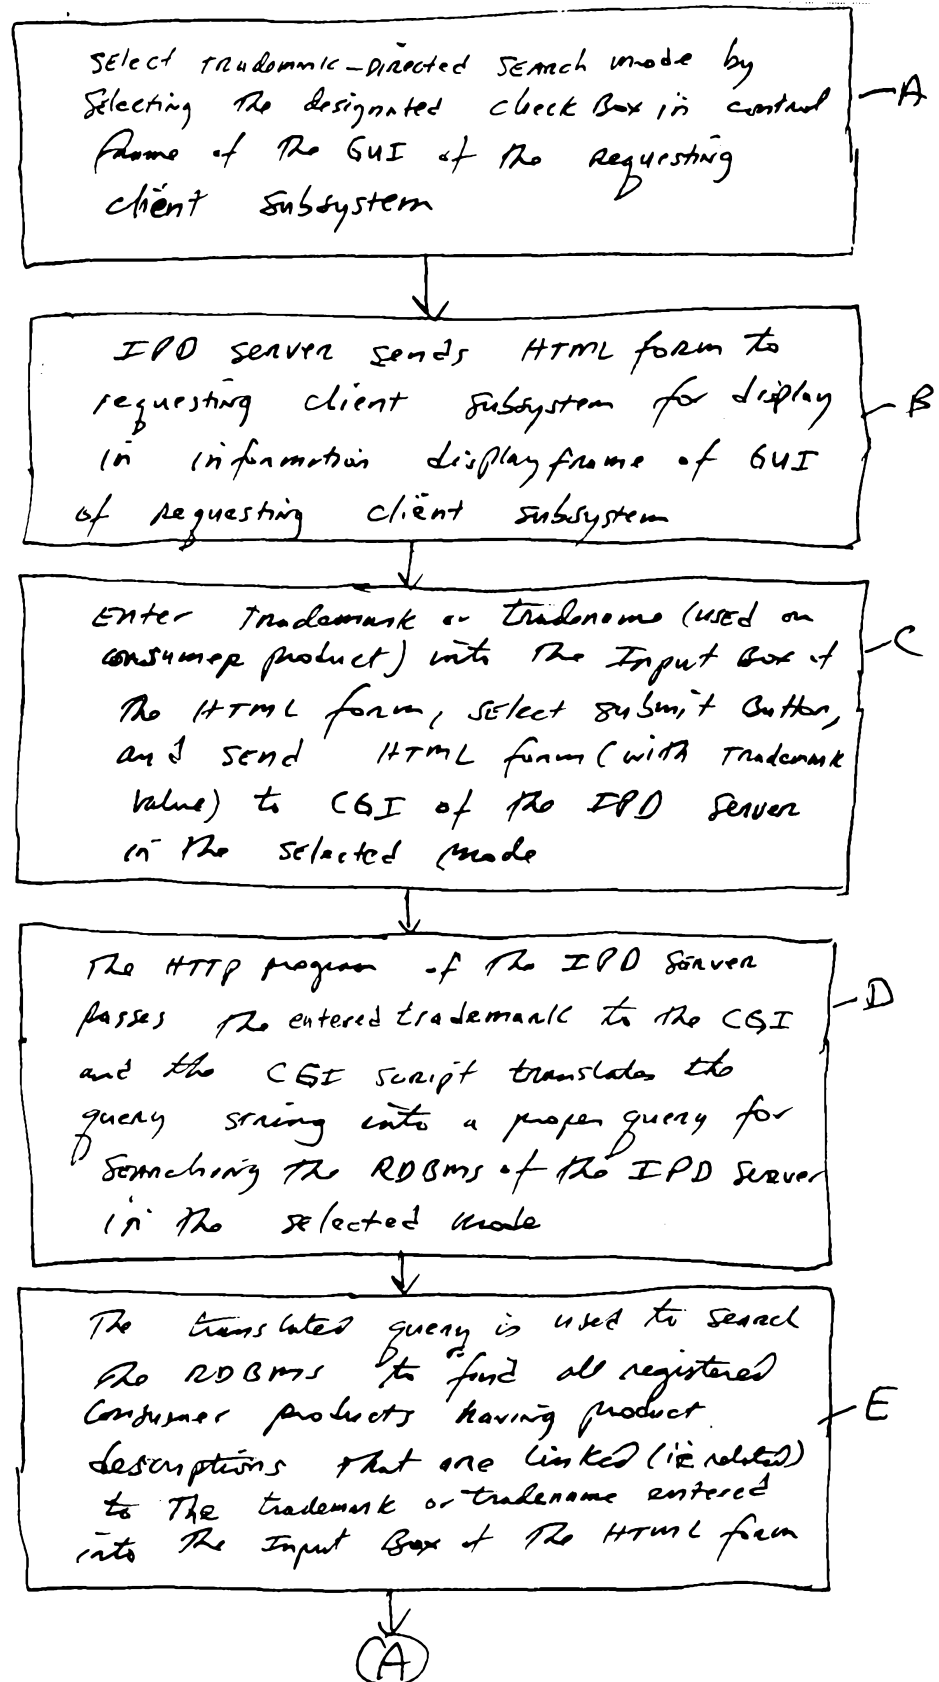 Select Trademark-Directed Search mode by
Selecting the designated check Box in control
frame of the GUI of the Requesting
client subsystem
A
IPD server sends HTML form to
requesting client subsystem for display
in information display frame of GUI
of Requesting client subsystem
B
Enter Trademark or tradename (used on
consumer product) into the Input Box of
the HTML form, select submit Button,
and send HTML form (with Trademark
Value) to CGI of the IPD Server
in the selected mode
C
The HTTP program of the IPD Server
passes the entered trademark to the CGI
and the CGI script translates the
query string into a proper query for
Searching the RDBMS of the IPD Server
in the selected mode
D
The translated query is used to search
the RDBMS to find all registered
Consumer products having product
descriptions that are linked (ie related)
to The trademark or tradename entered
into The Input Box of The HTML form
E
A